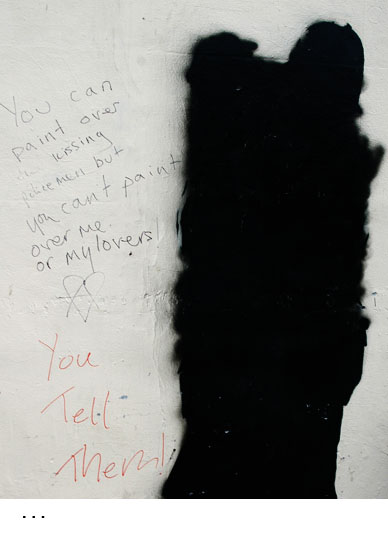 You can
paint over
the kissing
policemen but
you can't paint
over me
or my lovers!
You
Tell
Them!
...